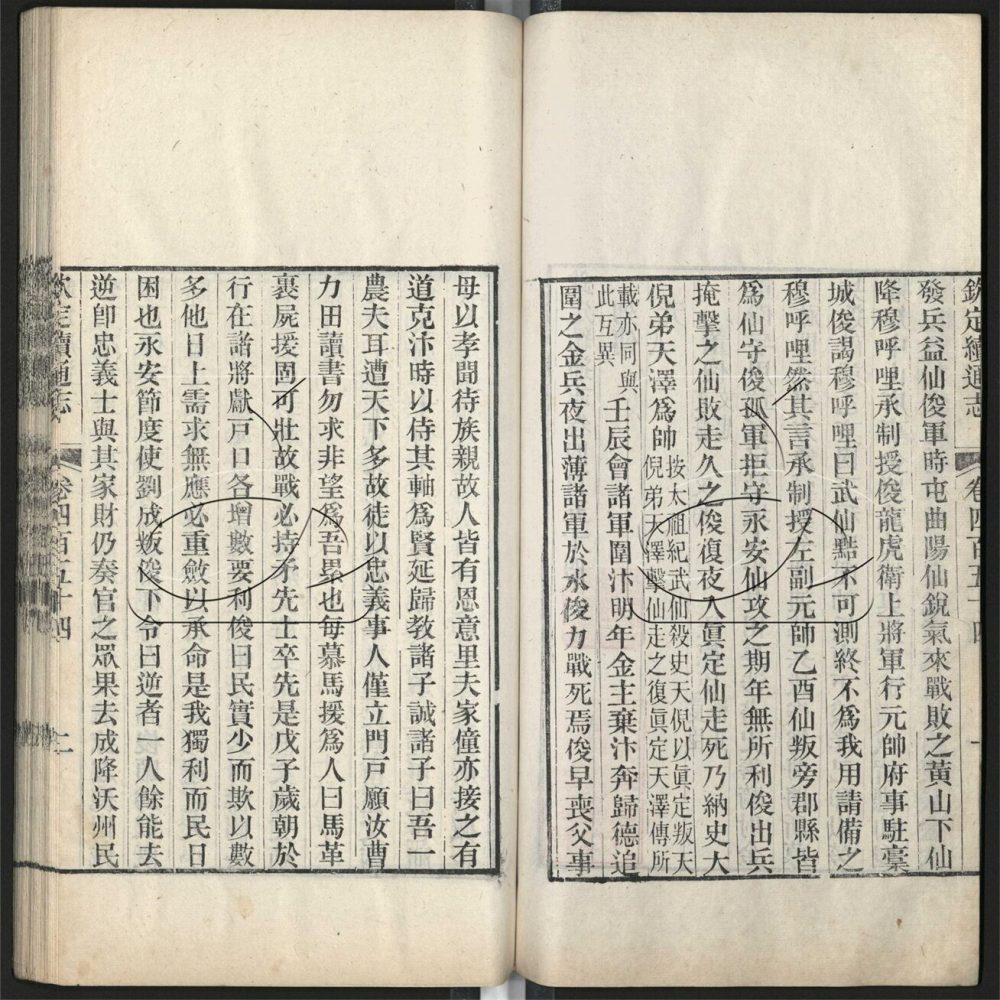 欽定續通志 卷四百五十四 一
發兵益仙俊軍時屯曲陽仙銳氣來戰敗之黃山下仙
降穆呼哩承制授俊龍虎衛上將軍行元帥府事駐槀
城俊謁穆呼哩曰武仙黠不可測終不爲我用請備之
穆呼哩然其言承制授左副元帥乙酉仙叛旁郡縣皆
爲仙守俊孤軍拒守永安仙攻之期年無所利俊出兵
掩擊之仙敗走久之俊復夜入眞定仙走死乃納史大
倪弟天澤爲帥按太祖紀武仙殺史天倪以眞定叛天
倪弟天澤擊仙走之復眞定天澤傳所
載亦同與
此互異壬辰會諸軍圍汴明年金主棄汴奔歸德追
圍之金兵夜出薄諸軍於水俊力戰死焉俊早喪父事
母以孝聞待族親故人皆有恩意里夫家僮亦接之有
道克汴時以侍其軸爲賢延歸教諸子誡諸子曰吾一
農夫耳遭天下多故徒以忠義事人僅立門戸願汝曹
力田讀書勿求非望爲吾累也每慕馬援爲人曰馬革
裹屍援固可壯故戰必持矛先士卒先是戊子歲朝於
行在諸將獻戸口各增數要利俊曰民實少而欺以數
多他日上需求無應必重斂以承命是我獨利而民日
困也永安節度使劉成叛俊下令曰逆者一人餘能去
逆卽忠義士與其家財仍奏官之眾果去成降沃州民
欽定續通志 卷四百五十四 二